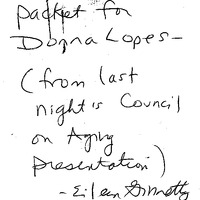 packet for
Donna Lopes-
(from last
night's Council
on Aging
presentation)
- Eileen